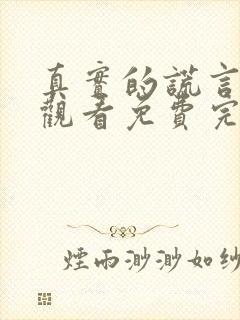 真實的謊言
觀看免費完
煙雨渺渺如紗